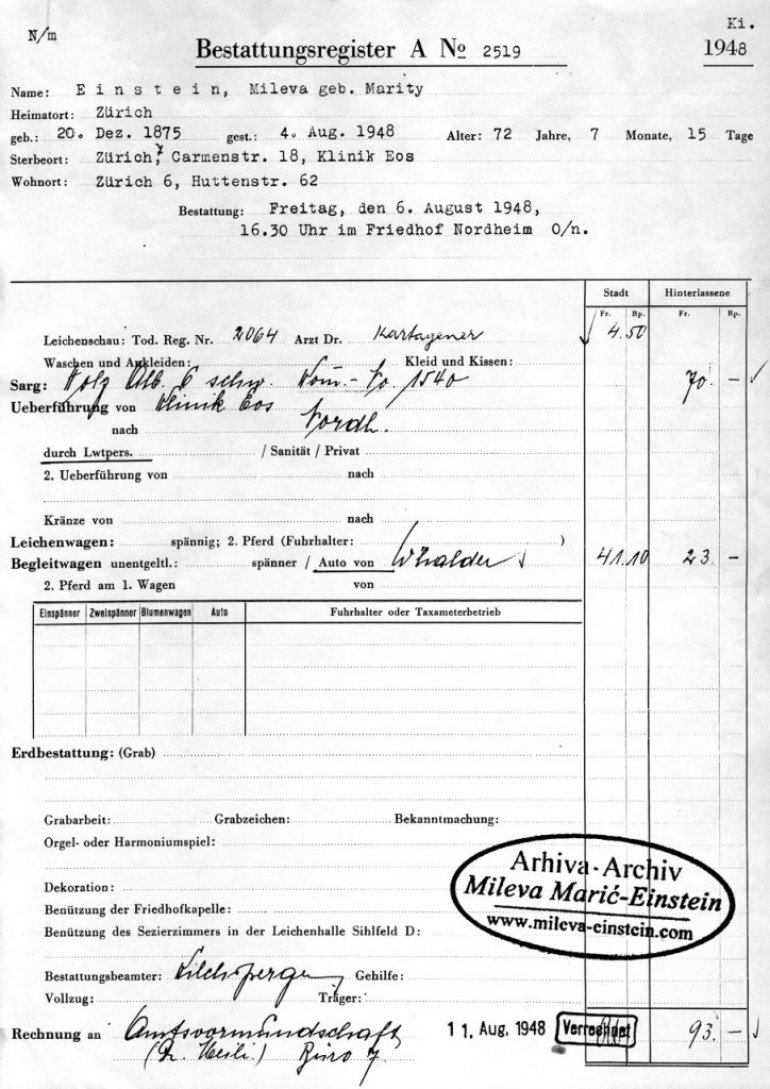 N/m
Ki.
Bestattungsregister A No 2519
1948
Name: Einstein, Mileva geb. Marity
Heimatort: Zürich
geb.: 20. Dez. 1875 gest.: 4. Aug. 1948 Alter: 72 Jahre, 7 Monate, 15 Tage
Sterbeort: Zürich 7, Carmenstr. 18, Klinik Eos
Wohnort: Zürich 6, Huttenstr. 62
Bestattung: Freitag, den 6. August 1948,
16.30 Uhr im Friedhof Nordheim O/n.
Stadt Hinterlassene
Fr. Rp. Fr. Rp.
Leichenschau: Tod. Reg. Nr. 2064 Arzt Dr. Kartagener 4.50
Waschen und Ankleiden: Kleid und Kissen:
Sarg: Holz 6 schw. 1540 70. –
Ueberführung von Klinik Eos
nach Nordh.
durch Lwtpers. / Sanität / Privat
2. Ueberführung von nach
Kränze von nach
Leichenwagen: spännig; 2. Pferd (Fuhrhalter: )
Begleitwagen unentgeltl.: spänner / Auto von 41.10 23. –
2. Pferd am 1. Wagen von
Einspänner Zweispänner Blumenwagen Auto Fuhrhalter oder Taxameterbetrieb
Erdbestattung: (Grab)
Grabarbeit: Grabzeichen: Bekanntmachung:
Orgel- oder Harmoniumspiel:
Arhiva-Archiv
Mileva Marić-Einstein
www.mileva-einstein.com
Dekoration:
Benützung der Friedhofkapelle:
Benützung des Sezierzimmers in der Leichenhalle Sihlfeld D:
Bestattungsbeamter: Kilchsperger Gehilfe:
Vollzug: Träger:
Rechnung an Amtsvormundschaft 11. Aug. 1948 Verrechnet 93. –
Büro 7